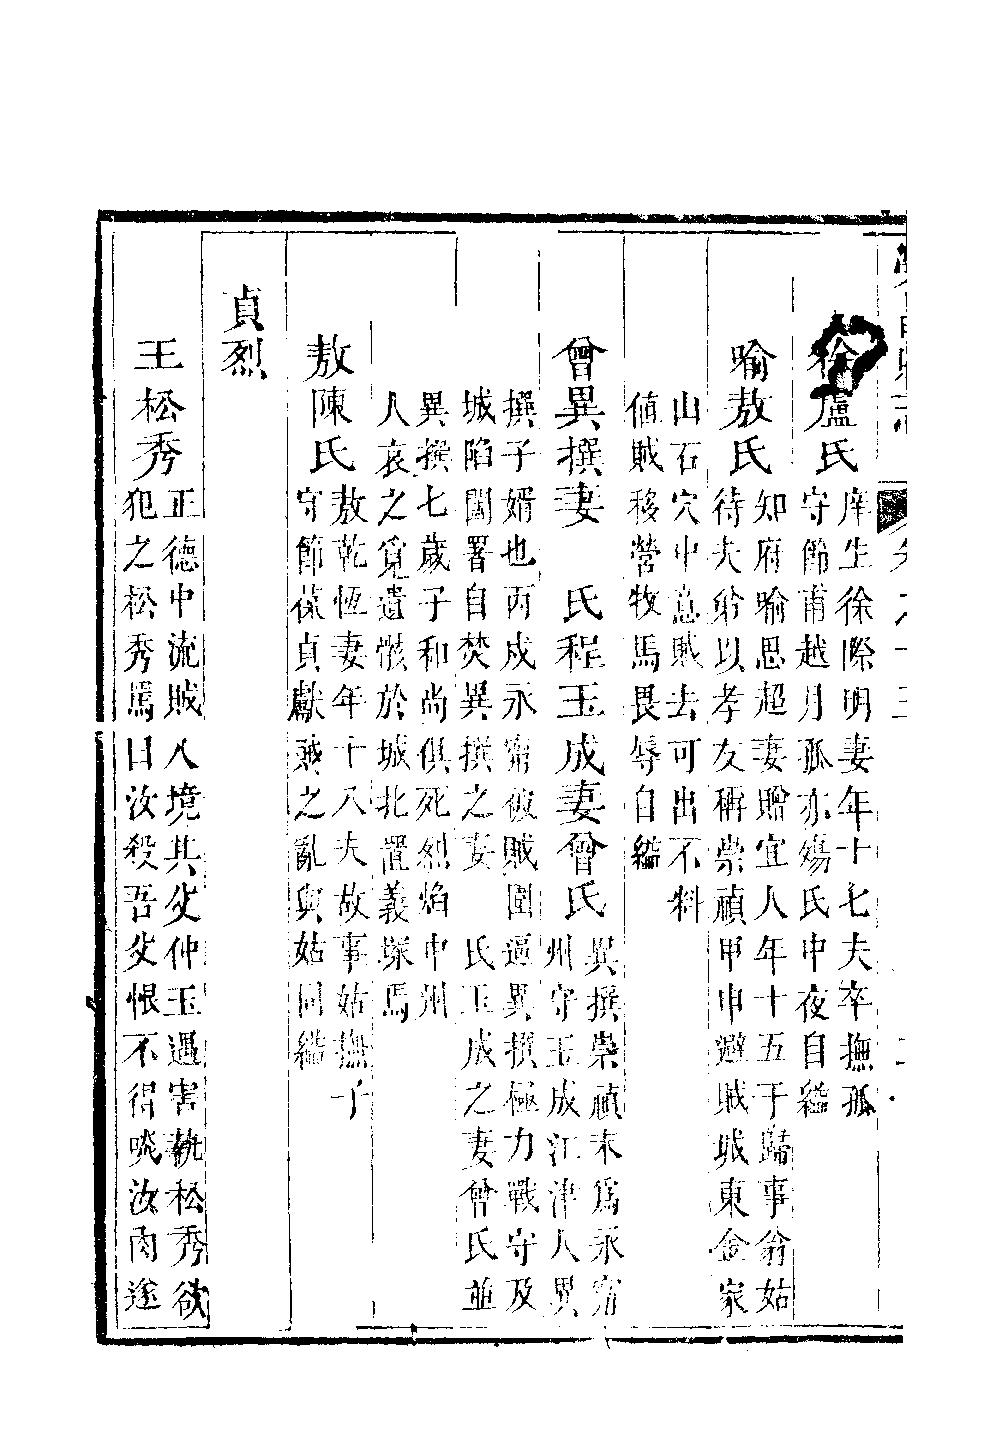 徐盧氏庠生徐際明妻年十七夫卒撫孤
守節甫越月孤亦殤氏中夜自縊
喻敖氏知府喻思超妻贈宜人年十五于歸事翁姑
待夫弟以孝友稱崇禎甲申避賊城東金家
山石穴中意賊去可出不料
值賊移營牧馬畏辱自縊
曾異撰妻 氏程玉成妻曾氏異撰崇禎末爲永甯
州守玉成江津人異
撰子婿也丙戌永甯被賊圍逼異撰極力戰守及
城陷闔署自焚異撰之妻 氏玉成之妻曾氏並
異撰七歲子和尚俱死烈焰中州
人哀之覓遺骸於城北置義塚焉
敖陳氏敖乾恆妻年十八夫故事姑撫子
守節葆貞獻賊之亂與姑同縊
貞烈
王松秀正德中流賊入境其父仲玉遇害執松秀欲
犯之松秀罵曰汝殺吾父恨不得啖汝肉遂